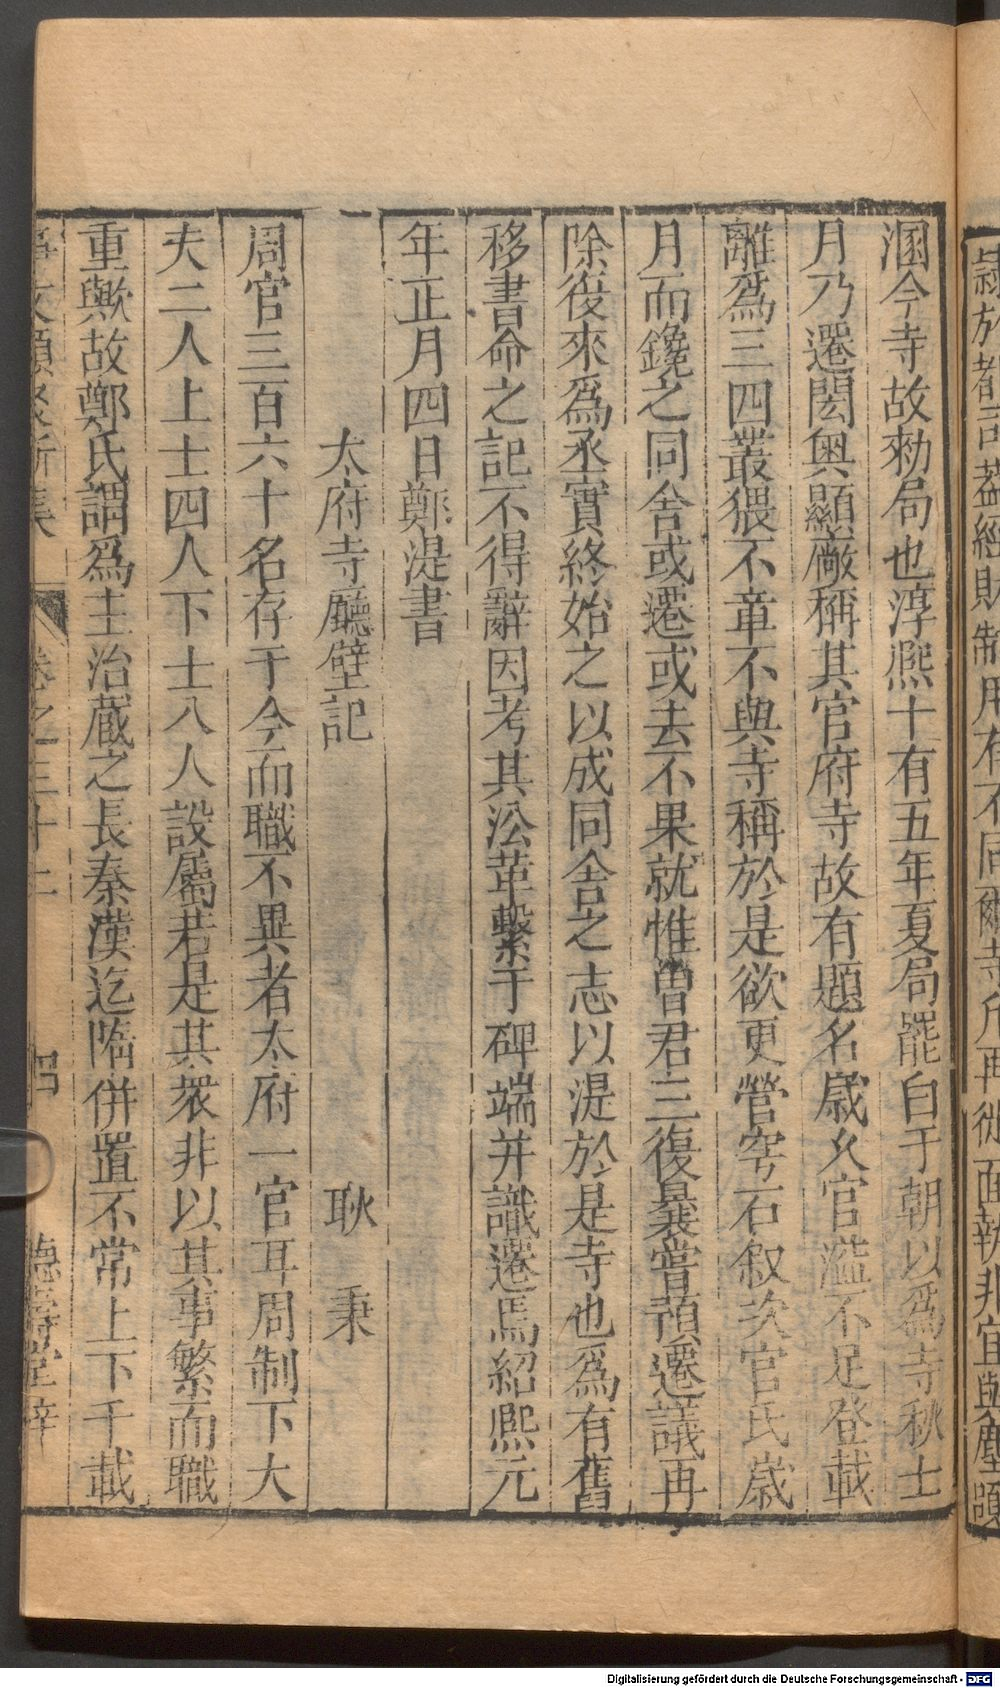 隷於都司蓋經財制用存不同爾寺凡再徙面執非宜與塵
溷今寺故勑局也淳熙十有五年夏局罷白于朝以爲寺秋七
月乃遷閎奥顯敞稱其官府寺故有題名歲久官濫不足登載
離爲三四叢猥不章不與寺稱於是欲更營穹石叙次官氏歲
月而鑱之同舍或遷或去不果就惟曽君三復曩嘗預遷議再
除復來爲丞實終始之以成同舍之志以湜於是寺也爲有舊
移書命之記不得辭因考其㳂革繫于碑端并識遷焉紹熙元
年正月四日鄭湜書
太府寺廳壁記　耿秉
周官三百六十名存于今而職不異者太府一官耳周制下大
夫二人上士四人下士八人設屬若是其衆非以其事繁而職
重歟故鄭氏謂爲主治蔵之長秦漢迄隋併置不常上下千載
事文類聚新集　卷之三十二　四　德壽堂梓
Digitalisierung gefördert durch die Deutsche Forschungsgemeinschaft - DFG